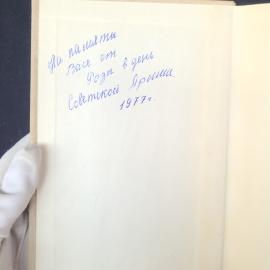 На память
Васе от
Розы в день
Советской Армии
1977 г.